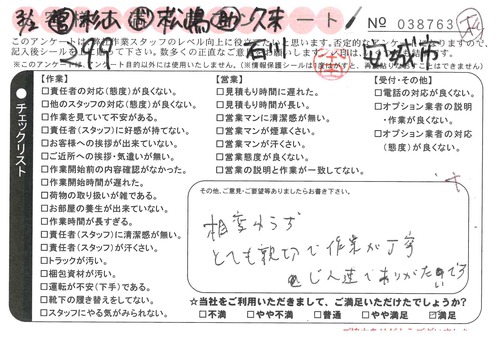 ート
No 038763
杉山 松嶋 久米
石川
安城市
このアンケートは
作業スタッフのレベル向上に役立て
記入後シールを
数多くの率直なご意見
※このアンケートは
アンケート目的以外には使用いたしません。
チェックリスト
【作業】
□責任者の対応(態度)が良くない。
□他のスタッフの対応(態度)が良くない。
□作業を見ていて不安がある。
□責任者(スタッフ)に好感が持てない。
□お客様への挨拶が出来ていない。
□ご近所への挨拶・気遣いが無い。
□作業開始前の内容確認がなかった。
□作業開始時間が遅れた。
□荷物の取り扱いが雑である。
□お部屋の養生が出来ていない。
□作業時間が長すぎる。
□責任者(スタッフ)に清潔感が無い。
□責任者(スタッフ)が汗くさい。
□トラックが汚い。
□梱包資材が汚い。
□運転が不安(下手)である。
□靴下の履き替えをしてない。
□スタッフにやる気がみられない。
【営業】
□見積もり時間に遅れた。
□見積もり時間が長い。
□営業マンに清潔感が無い。
□営業マンが煙草くさい。
□営業マンが汗くさい。
□営業態度が良くない。
□営業の説明と作業が一致してない。
【受付・その他】
□電話の対応が良くない。
□オプション業者の説明
・作業が良くない。
□オプション業者の対応
(態度)が良くない。
その他、ご意見・ご要望等ありましたらお書き下さい。
相変わらず
とても親切で作業が丁寧
ご主人達でありがたいです
☆当社をご利用いただきまして、ご満足いただけたでしょうか?
□不満 □やや不満 □普通 □やや満足 ☑満足